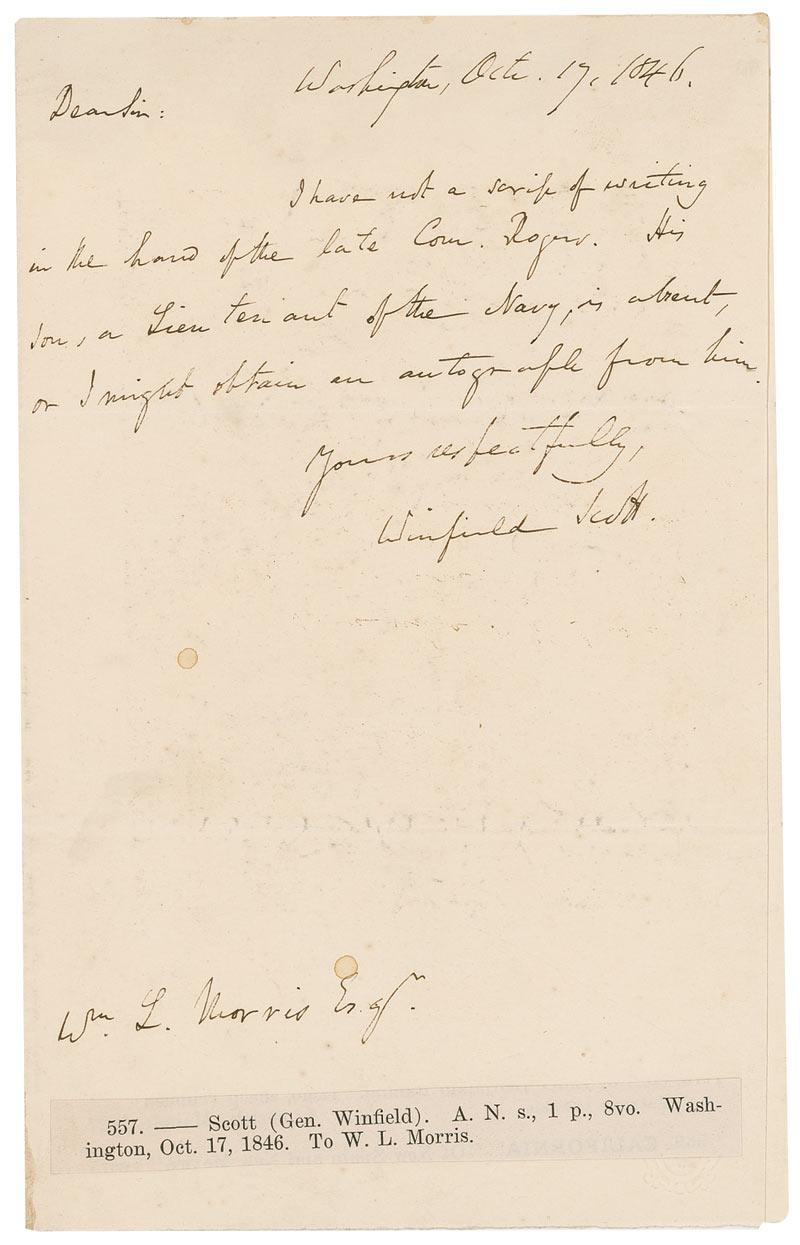 Washington, Oct. 17, 1846.
Dear Sir:
I have not a scrip of writing
in the hand of the late Com. Rogers. His
son, a Lieutenant of the Navy, is absent,
or I might obtain an autograph from him.
Yours respectfully,
Winfield Scott.
Wm. L. Morris Esqr.
557. —— Scott (Gen. Winfield). A. N. s., 1 p., 8vo. Wash-
ington, Oct. 17, 1846. To W. L. Morris.